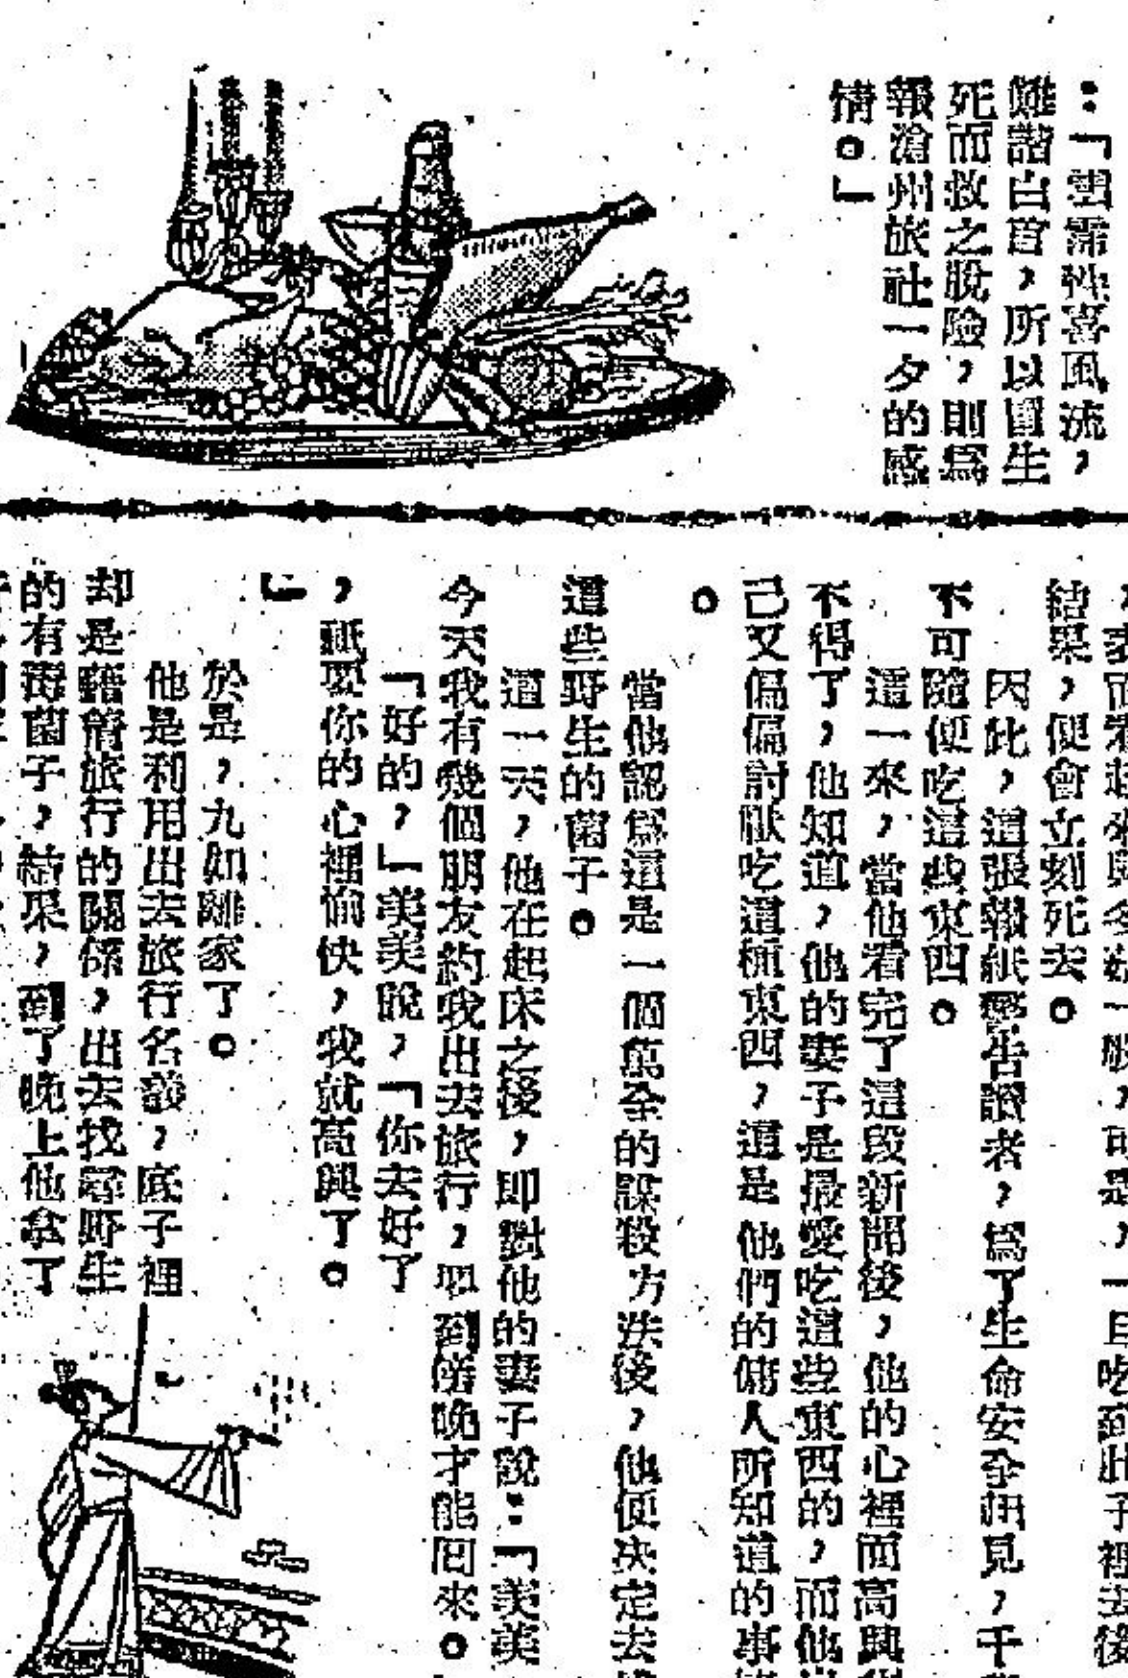 ：「雲霈性喜風流，
難諧白首，所以置生
死而救之脫險，則爲
報滄州旅社一夕的感
情。」
一般，可是，一旦吃到肚子裡去後
結果，便會立刻死去。
因此，這張報紙警告讀者，爲了生命安全起見，千
不可隨便吃這些東西。
這一來，當他看完了這段新聞後，他的心裡面高興得
不得了，他知道，他的妻子是最愛吃這些東西的，而他
己又偏偏討厭吃這種東西，這是他們的傭人所知道的事
。
當他認爲這是一個萬全的謀殺方法後，他便决定去
這些野生的菌子。
這一天，他在起床之後，即對他的妻子說：「美美
今天我有幾個朋友約我出去旅行，要到傍晚才能回來。
「好的，」美美說，「你去好了
，祇要你的心裡愉快，我就高興了。
」
於是，九如離家了。
他是利用出去旅行名義，底子裡
却是藉着旅行的關係，出去找尋野生
的有毒菌子，結果，到了晚上他拿了